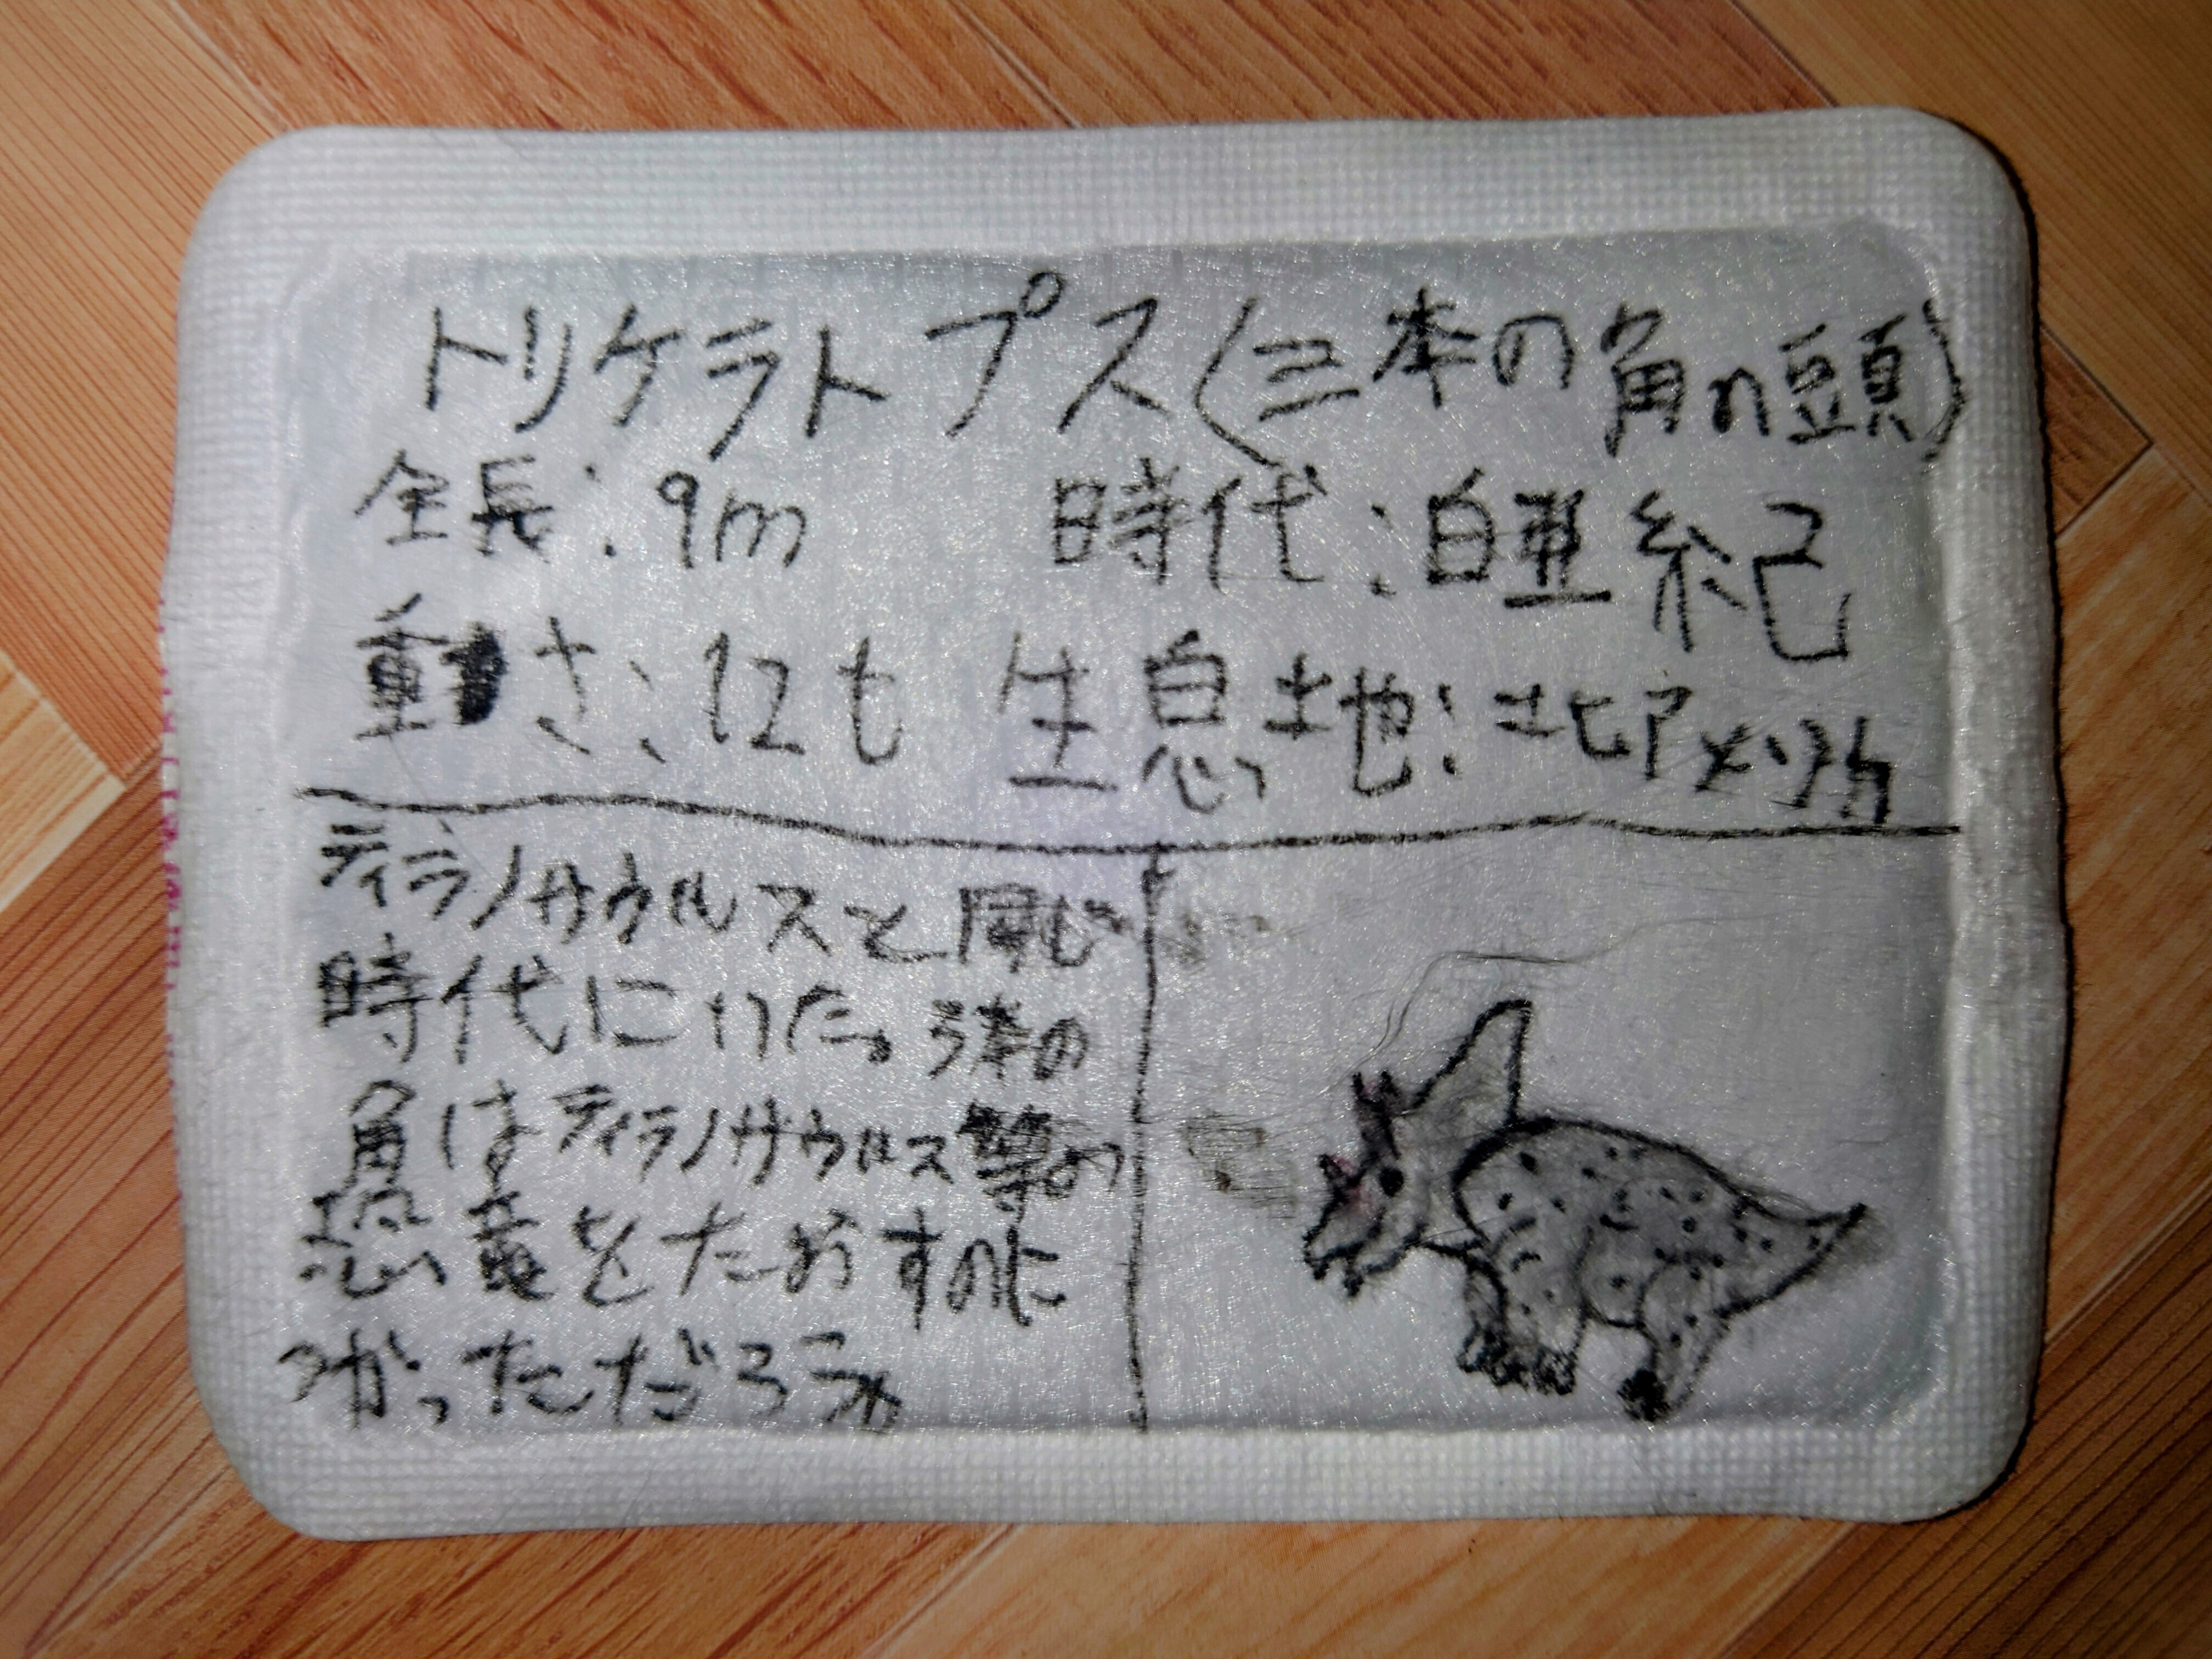 トリケラトプス(三本の角の頭)
全長:9m 時代:白亜紀
重さ:12t 生息地:北アメリカ
ティラノサウルスと同じ
時代にいた。3本の
角はティラノサウルス等の
恐竜をたおすのに
つかっただろう